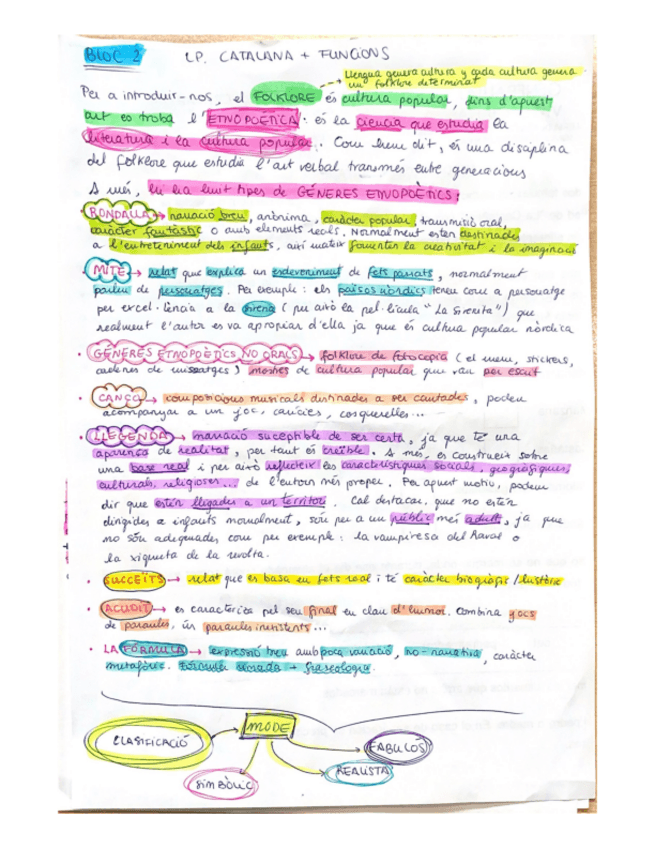 BLOC 2 LP. CATALANA + FUNCIONS
Llengua genera cultura y cada cultura genera
un folklore determinat
Per a introduir-nos, el FOLKLORE és cultura popular, dins d'aquest
art es troba l'ETNOPOÈTICA: és la ciència que estudia la
literatura i la cultura popular. Com hem dit, és una disciplina
del folklore que estudia l'art verbal transmès entre generacions
A més, hi ha huit tipes de GÉNERES ETNOPOÈTICS:
· RONDALLA → narració breu, anònima, caràcter popular, transmisió oral,
caràcter fantàstic o amb elements reals. Normalment estan destinades
a l'entreteniment dels infants, així mateix fomenten la creativitat i la imaginació
· MITE → relat que explica un esdeveniment de fets passats, normalment
parlen de personatges. Per exemple: els països nòrdics tenen com a personatge
per excel·lència a la sirena (per això la pel·lícula "La Sirenita") que
realment l'autor es va apropiar d'ella ja que és cultura popular nòrdica
· GÉNERES ETNOPOÈTICS NO ORALS → folklore de fotocopia (el meu, stickers,
cadenes de missatges) mostres de cultura popular que van per escrit
· CANÇÓ → composicions musicals destinades a ser cantades, poden
acompanyar a un joc, carícies, cosquerelles...
· LLEGENDA → narració suceptible de ser certa, ja que te una
aparença de realitat, per tant és creïble. A més, es construeix sobre
una base real i per això reflecteix les característiques socials, geogràfiques,
culturals, religioses... de l'entorn més proper. Per aquest motiu, podem
dir que estàn lligades a un territori. Cal destacar, que no estàn
dirigides a infants normalment, són per a un públic més adult, ja que
no són adequades com per exemple: la vampiresa del Raval o
la xiqueta de la revolta.
· SUCCEÏTS → relat que es basa en fets real i té caràcter biogràfic/històric
· ACUDIT → es caracteritza pel seu final en clau d'humor. Combina jocs
de paraules, ús paraules inexistents...
· LA FÓRMULA → expressió breu amb poca variació, no-narrativa, caràcter
metafòric. Fórmula versada → fraseologia.
CLASIFICACIÓ
MODE
FABULÓS
REALISTA
SIMBÒLIC